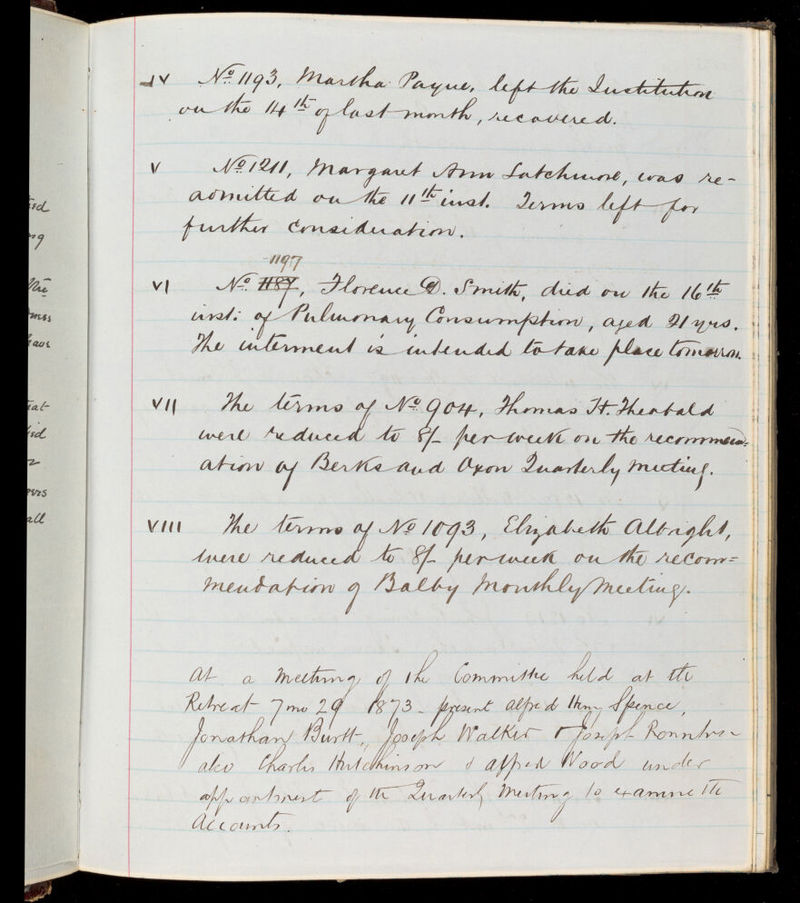 ısd
ng
the
mes
have
eat
ied
or
vers
all
IV No. 1193, Martha Payne, left the Institution
on the 14th of last month, recovered.
V No. 1211, Margaret Ann Latchmore, was re-
admitted on the 11th inst. Terms left for
further consideration.
1197
VI No. 1187, Florence D. Smith, died on the 16th
inst: of Pulmonary Consumption, aged 21 yrs.
The interment is intended to take place tomorrow.
VII The terms of No. 904, Thomas H. Theobald
were reduced to 8/- per week on the recommend=
ation of Berks and Oxon Quarterly Meeting.
VIII The terms of No. 1093, Elizabeth Albright,
were reduced to 8/- per week on the recom=
mendation of Balby Monthly Meeting.
At a Meeting of the Committee held at the
Retreat 7 mo 29 1873 - present Alfred Henry Spence,
Jonathan Burtt, Joseph Walker & Joseph Rowntree
also Charles Hutchinson & Alfred Wood under
appointment of the Quarterly Meeting to examine the
Accounts.